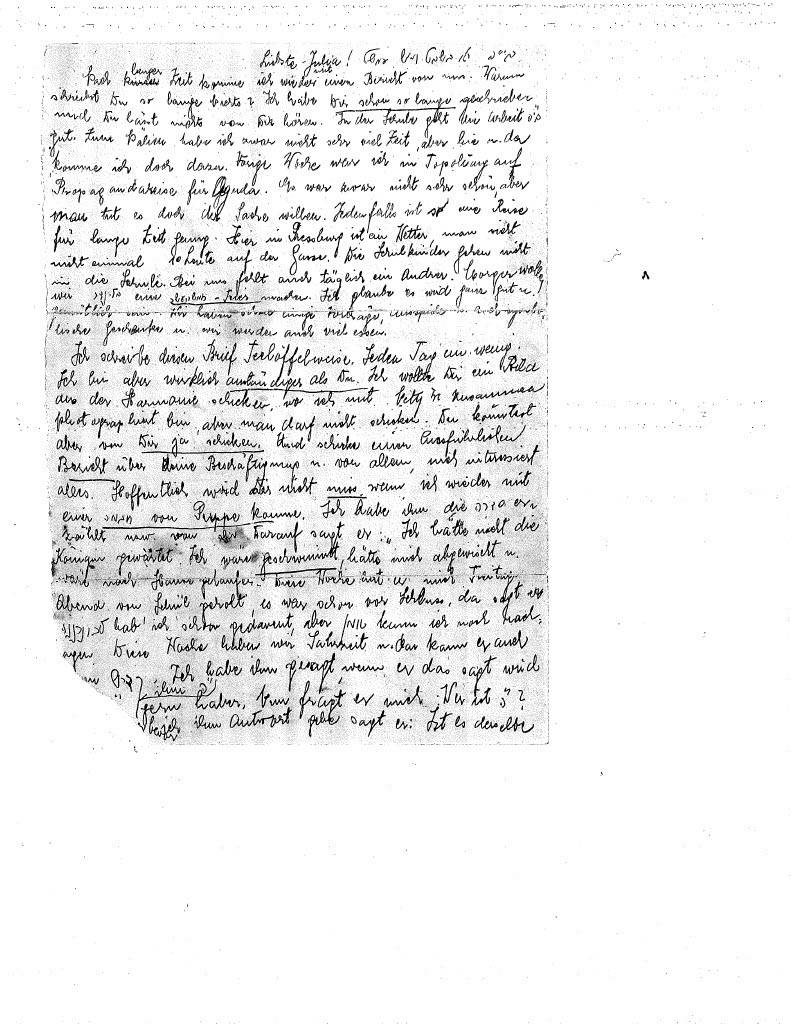 Liebste Julia!
Nach langer Zeit komme ich wieder mit einen Bericht von mir. Warum
schreibst Du so lange nichts? Ich habe Dir schon so lange geschrieben
und Du lässt nichts von Dir hören. In der Schule geht die Arbeit
gut. Zum habe ich zwar nicht sehr viel Zeit, aber hie u. da
komme ich doch dazu. Vorige Woche war ich in Topolčany auf
Propagandareise für Aguda. Es war zwar nicht sehr schön, aber
man tut es doch der Sache willen. Jedenfalls ist so eine Reise
für lange Zeit genug. Hier in Pressburg ist ein Wetter, man sieht
nicht einmal 10 Leute auf der Gasse. Die Schulkinder gehen nicht
in die Schule. Bei uns fehlt auch täglich ein Andrer. Morgen wollen
wir eine machen. Ich glaube es wird ganz gut u.
gemütlich sein. Wir haben schon einige Vorträge, u.
Geschenke u. wir werden auch viel essen.
Ich schreibe diesen Brief Teelöffelweise. Jeden Tag ein wenig.
Ich bin aber wirklich anständiger als Du. Ich wollte Dir ein Bild
aus der schicken, wo ich mit zusammen
photographiert bin, aber man darf nicht schicken. Du könntest
aber von Dir ja schicken. Und schicke einen Ausführlichen
Bericht über deine Beschäftigung u. von allem, mich interessiert
alles. Hoffentlich wird Dir nicht mies, wenn ich wieder mit
einer von Puppe komme. Ich habe ihm die er-
zählt von Darauf sagt er: "Ich hätte nicht die
Königin gewartet. Ich wäre geschwommen, hätte mich abgewischt u.
wäre nach Hause gelaufen. Diese Woche hat er mich Freitag
Abend von Schul geholt, es war schon vor Schluss, da sagt er
hab' ich schon gedavent, aber kann ich noch nach-
sagen. Diese Woche haben wir u. das kann er auch
Ich habe ihm gesagt, wenn er das sagt wird
ihm
gern haben. Nun fragt er mich: Wer ist ה'?
ich ihm Antwort gebe sagt er: Ist es derselbe